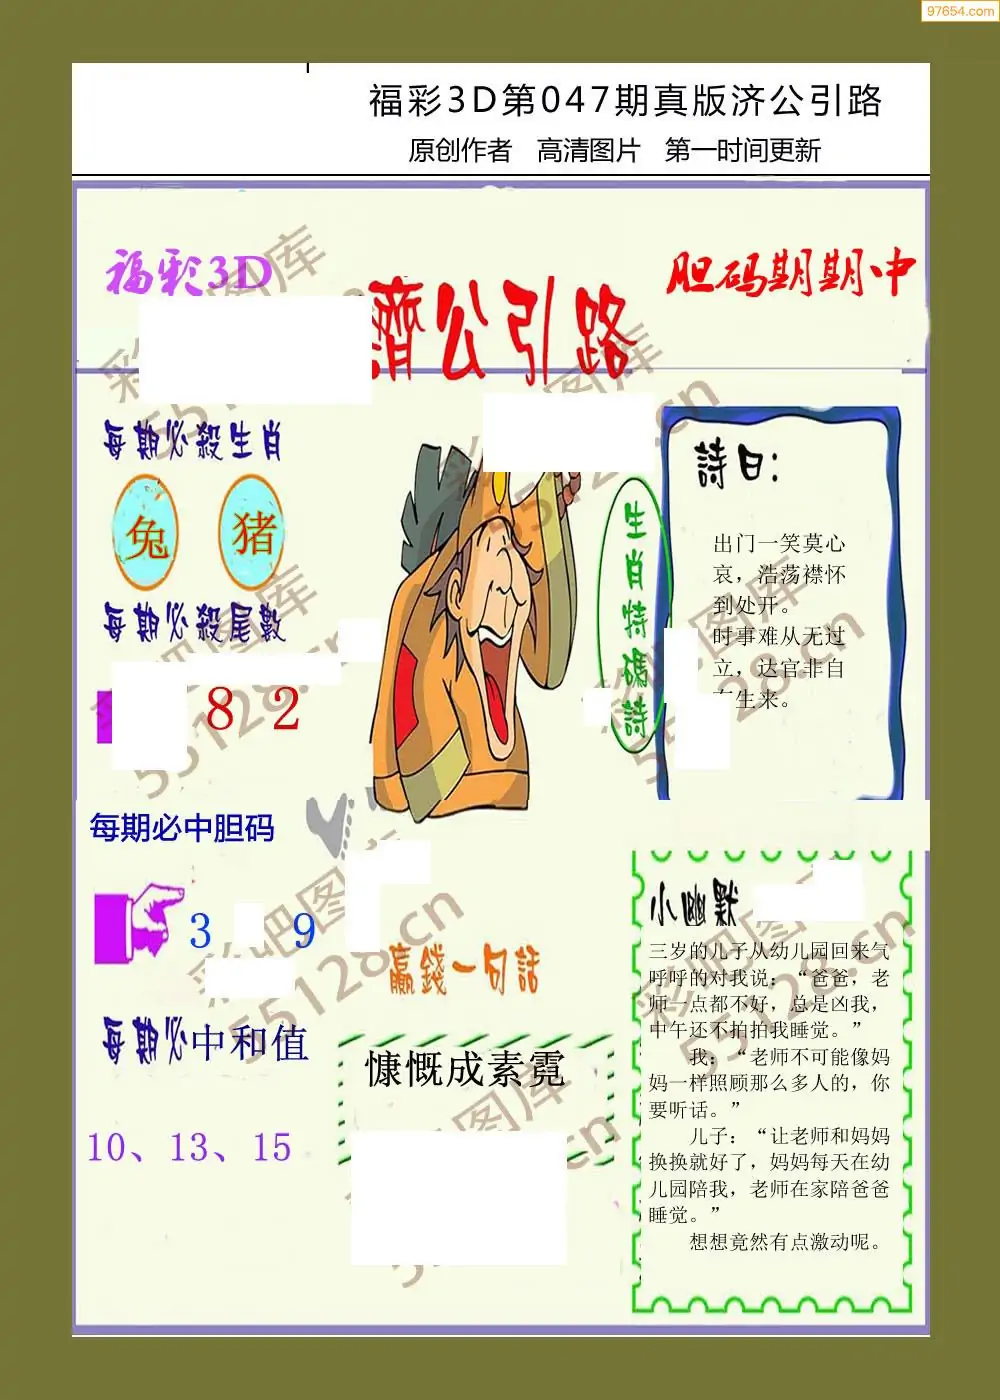 97654.com
福彩3D第047期真版济公引路
原创作者 高清图片 第一时间更新
福彩3D
濟公引路
胆码期期中
每期必殺生肖
兔 猪
每期必殺尾數
8 2
每期必中胆码
3 9
每期必中和值
10、13、15
生肖特碼詩
詩曰：
出门一笑莫心
哀，浩荡襟怀
到处开。
时事难从无过
立，达官非自
生来。
赢錢一句話
慷慨成素霓
小幽默
三岁的儿子从幼儿园回来气
呼呼的对我说：“爸爸，老
师一点都不好，总是凶我，
中午还不拍拍我睡觉。”
我：“老师不可能像妈
妈一样照顾那么多人的，你
要听话。”
儿子：“让老师和妈妈
换换就好了，妈妈每天在幼
儿园陪我，老师在家陪爸爸
睡觉。”
想想竟然有点激动呢。
彩吧图库
55128.cn